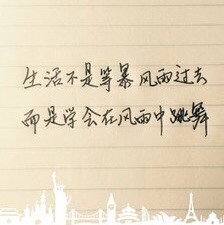 生活不是等暴风雨过去
而是学会在风雨中跳舞